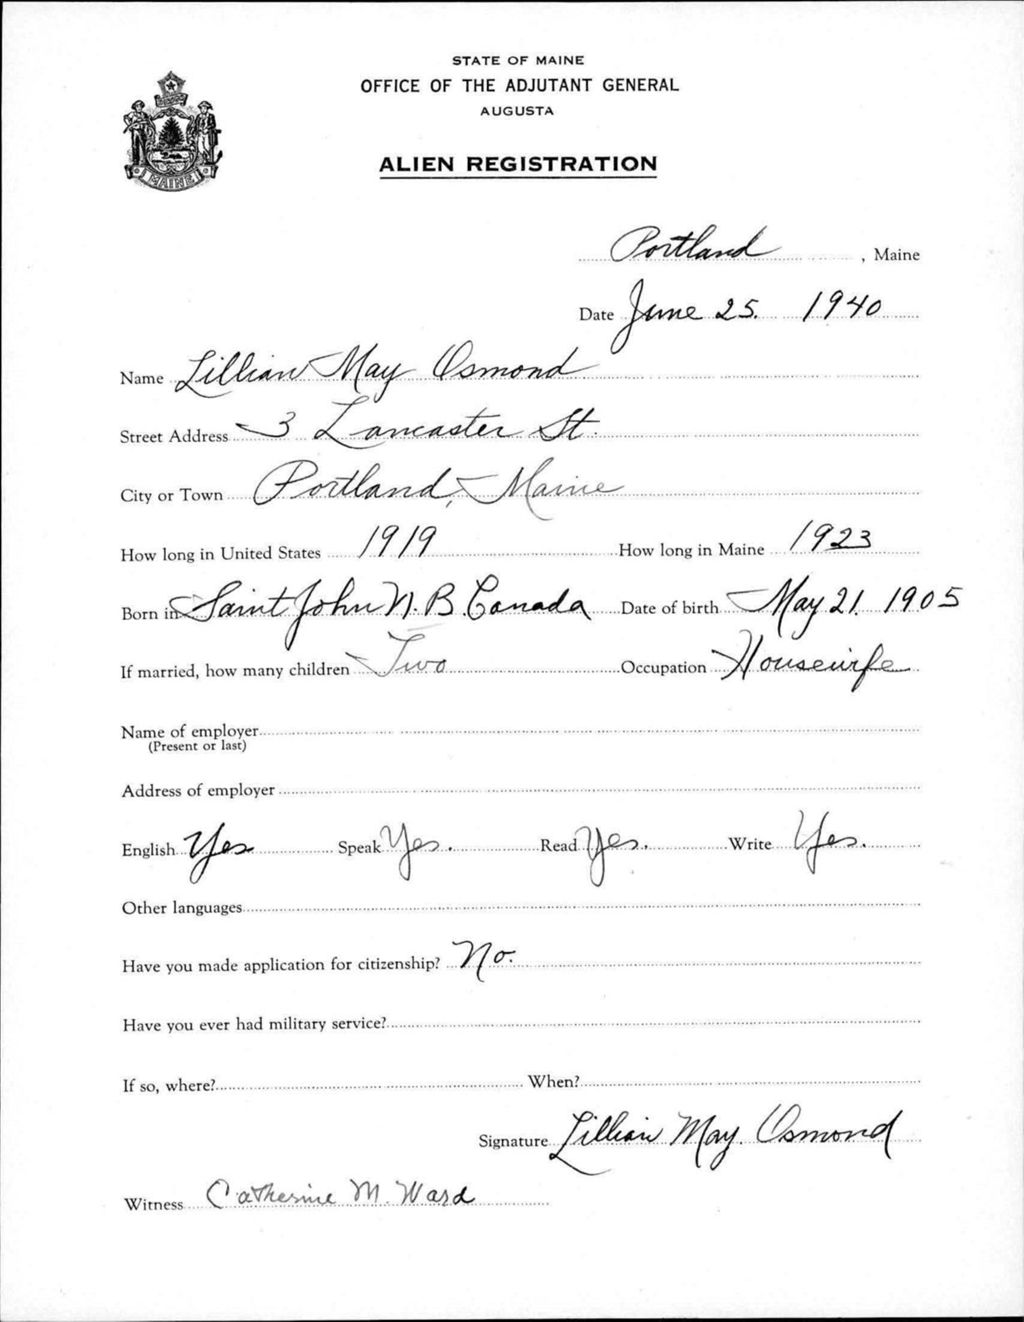 STATE OF MAINE
OFFICE OF THE ADJUTANT GENERAL
AUGUSTA
ALIEN REGISTRATION
MAINE
Portland, Maine
Date June 25. 1940
Name Lillian May Osmond
Street Address 3 Lancaster St.
City or Town Portland, Maine
How long in United States 1919 How long in Maine 1923
Born in Saint John N. B. Canada Date of birth May 21. 1905
If married, how many children Two Occupation Housewife
Name of employer
(Present or last)
Address of employer
English Yes Speak Yes. Read Yes. Write Yes.
Other languages
Have you made application for citizenship? No.
Have you ever had military service?
If so, where? When?
Signature Lillian May Osmond
Witness Catherine M. Ward